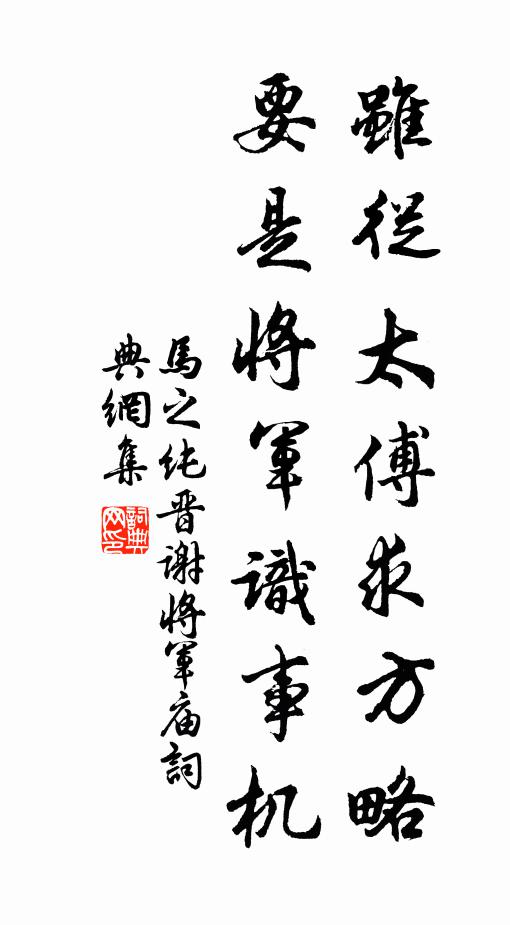 雖從太傅求方略
要是将軍識事机
馬之純晋謝将軍庙詞
典網集
詞典
网印